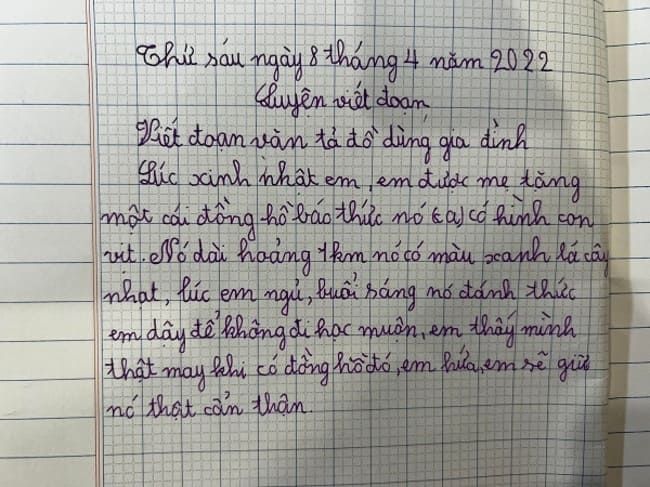 Thứ sáu ngày 8 tháng 4 năm 2022
Luyện viết đoạn
Viết đoạn văn tả đồ dùng gia đình
Lúc xinh nhật em, em được mẹ tặng
một cái đồng hồ báo thức nó (a) có hình con
vịt. Nó dài hoảng 1km nó có màu xanh lá cây
nhạt, lúc em ngủ, buổi sáng nó đánh thức
em dậy để không đi học muộn, em thấy mình
thật may khi có đồng hồ đó, em hứa, em sẽ giữ
nó thật cẩn thận.